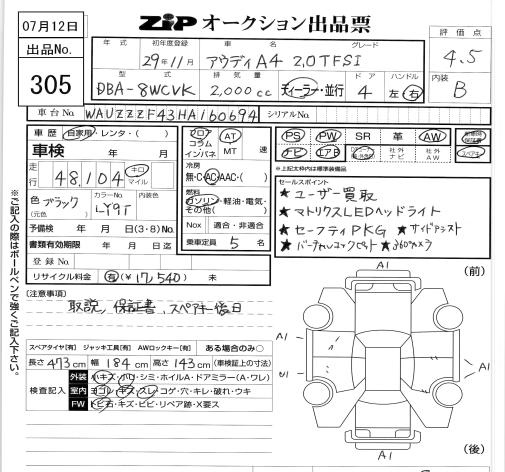 07月12日
出品No.
305
ZIP オークション出品票
評価点
4.5
内装
B
年式 初年度登録 車名 グレード
29年11月 アウディA4 2.0TFSI
型式 排気量 ドア ハンドル
DBA-8WCVK 2,000cc ディーラー・並行 4 左 右
車台No. WAUZZZF43HA160694 シリアルNo.
車歴 自家用・レンタ・( )
車検 年 月
走行 48,104 キロ マイル
色 ブラック (元色) カラーNo. LY9T 内装色
予備検 月 日 (3・8) No.
書類有効期限 年 月 日迄
登録No.
リサイクル料金 有(¥17,540) 未
フロア コラム インパネ AT MT 速
冷房 無・C・AC・AAC・( )
燃料 ガソリン・軽油・電気・その他( )
Nox 適合・非適合
乗車定員 5 名
PS PW SR 革 AW 新車時保証書
ナビ エアB 社外ナビ 社外AW スペアキー
※上記太枠内は標準装備品
セールスポイント
★ユーザー買取
★マトリクスLEDヘッドライト
★セーフティPKG ★サイドアシスト
★バーチャルコックピット ★360°カメラ
(注意事項)
取説、保証書、スペアキー後日
スペアタイヤ[有] ジャッキ工具[有] AWロックキー[有] ある場合のみ○
長さ 473cm 幅 184cm 高さ 143cm (車検証上の寸法)
検査記入
外装 小キズ・凹・シミ・ホイルA・ドアミラー(A・ワレ)
室内 ヨゴレ・キズ・スレ・コゲ・穴・キレ・破れ・ウキ
FW トビ石・キズ・ヒビ・リペア跡・X要ス
A1
(前)
A1
A1
U1
U1
A1
(後)
※ご記入の際はボールペンで強くご記入下さい。